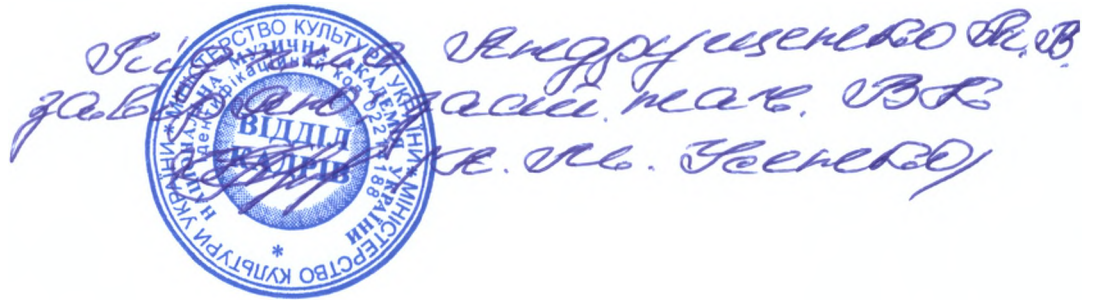 Підпис Андрущенко Т.В.
завіряю, заст. нач. ВК
К. М. Усенко/
МІНІСТЕРСТВО КУЛЬТУРИ УКРАЇНИ * МІНІСТЕРСТВО КУЛЬТУРИ УКРАЇНИ *
НАЦІОНАЛЬНА МУЗИЧНА АКАДЕМІЯ УКРАЇНИ
Ідентифікаційний код
ВІДДІЛ
КАДРІВ
*